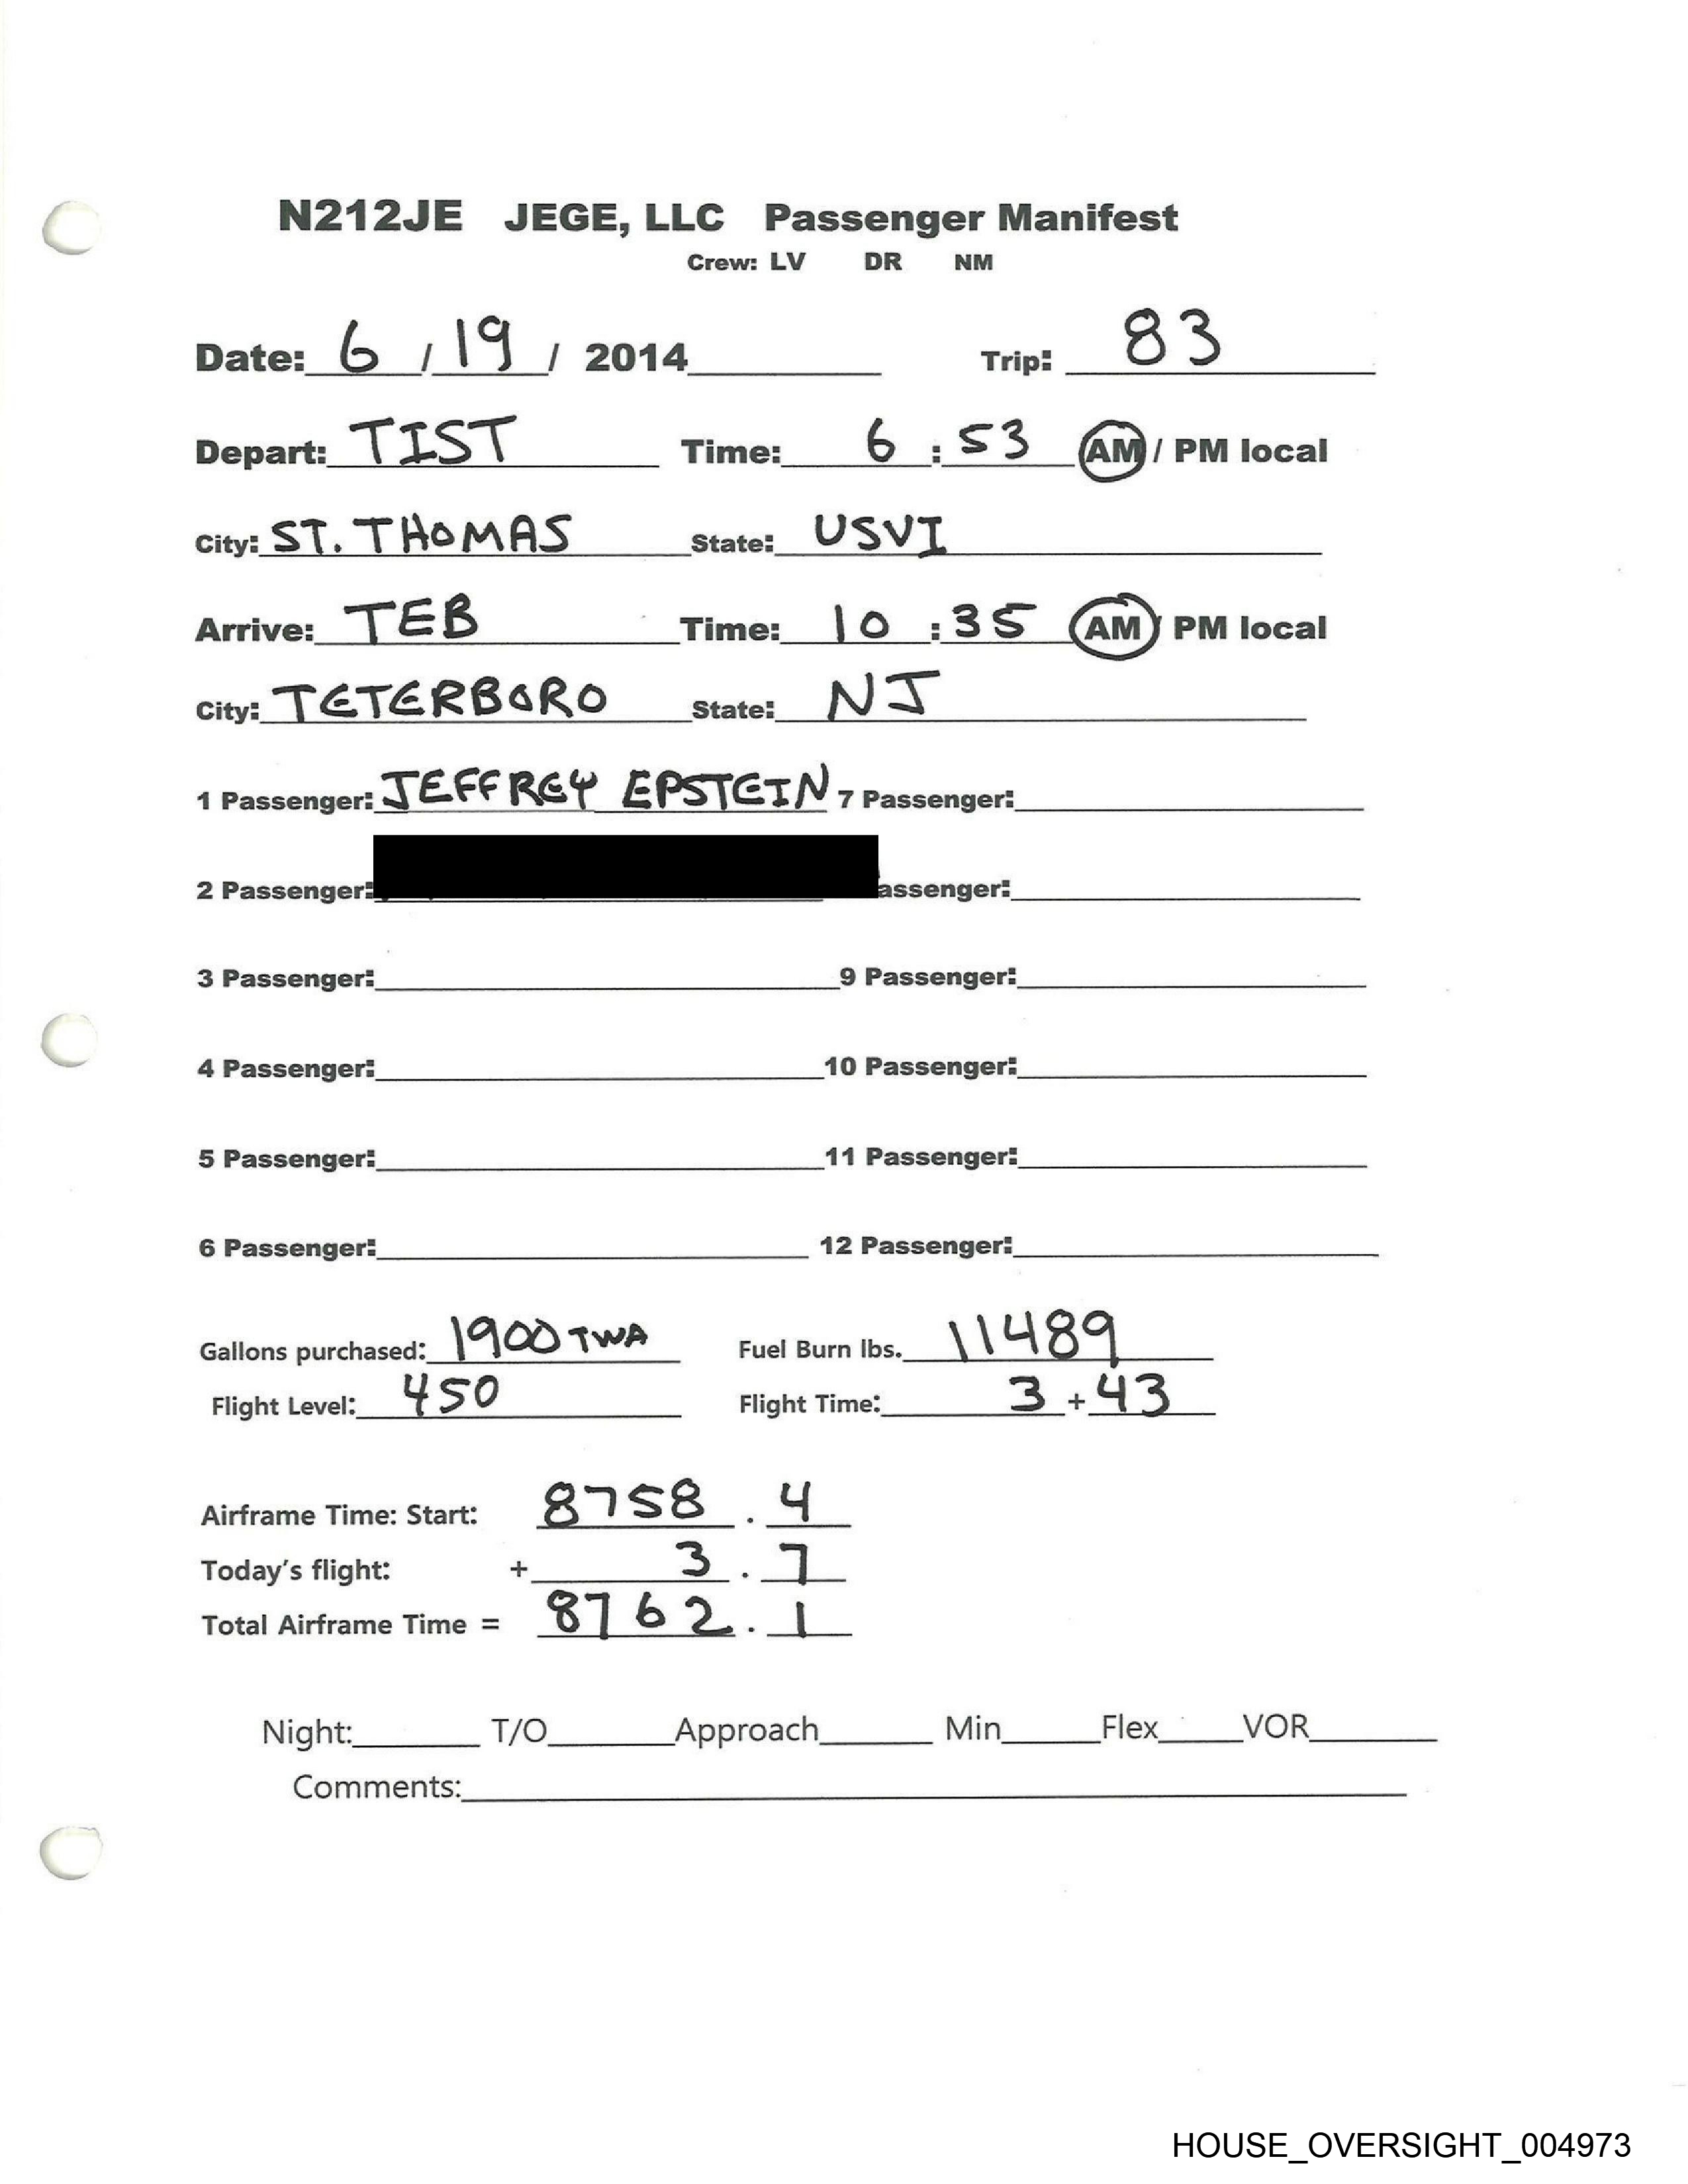 N212JE JEGE, LLC Passenger Manifest
Crew: LV DR NM
Date: 6 / 19 / 2014 Trip: 83
Depart: TIST Time: 6 : 53 AM / PM local
City: ST. THOMAS State: USVI
Arrive: TEB Time: 10 : 35 AM / PM local
City: TETERBORO State: NJ
1 Passenger: JEFFREY EPSTEIN 7 Passenger:
2 Passenger: assenger:
3 Passenger: 9 Passenger:
4 Passenger: 10 Passenger:
5 Passenger: 11 Passenger:
6 Passenger: 12 Passenger:
Gallons purchased: 1900 TWA Fuel Burn lbs. 11489
Flight Level: 450 Flight Time: 3 + 43
Airframe Time: Start: 8758 . 4
Today's flight: + 3 . 7
Total Airframe Time = 8762 . 1
Night: T/O Approach Min Flex VOR
Comments:
HOUSE_OVERSIGHT_004973